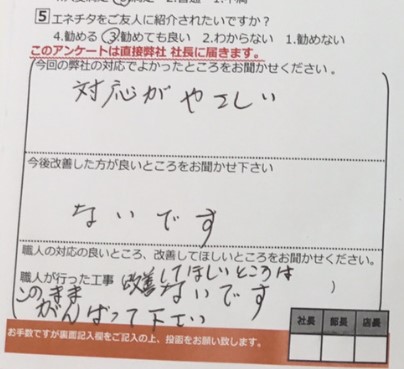 5 エネチタをご友人に紹介されたいですか？
4.勧める 3.勧めても良い 2.わからない 1.勧めない
このアンケートは直接弊社 社長に届きます。
今回の弊社の対応でよかったところをお聞かせください。
対応がやさしい
今後改善した方が良いところをお聞かせ下さい
ないです
職人の対応の良いところ、改善してほしいところをお聞かせください。
職人が行った工事 改善してほしいところは )
ないです
このまま
がんばって下さい
社長 部長 店長
お手数ですが裏面記入欄をご記入の上、投函をお願い致します。